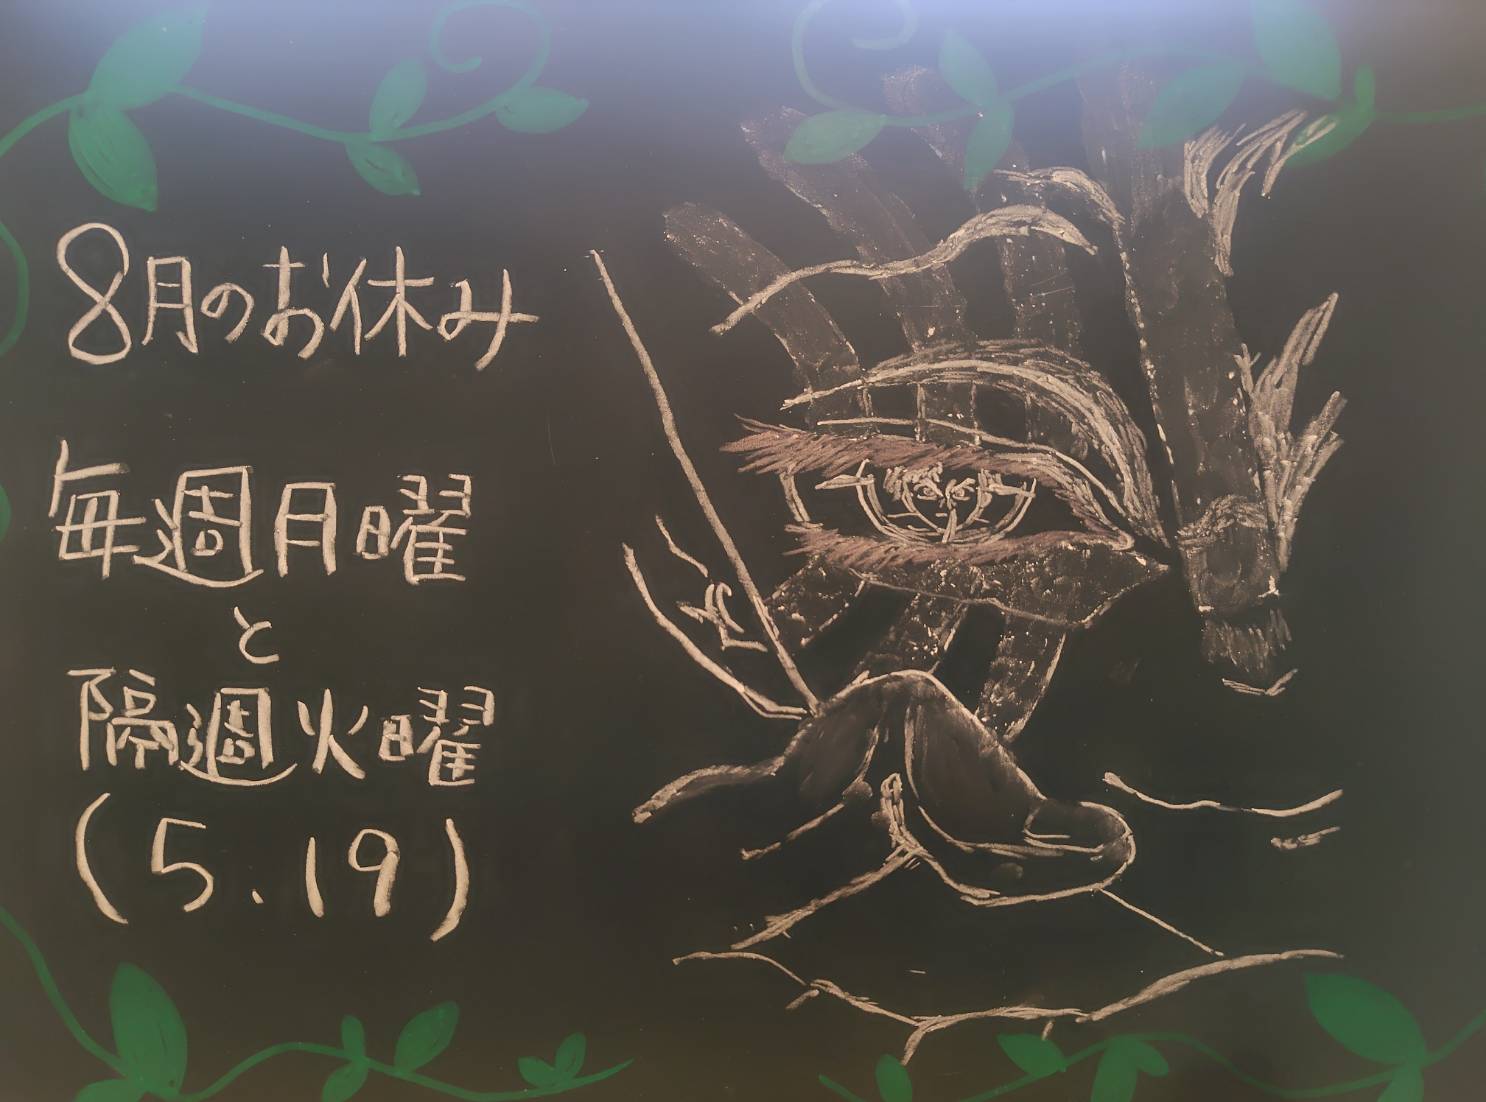 8月のお休み
毎週月曜
と
隔週火曜
(5.19)